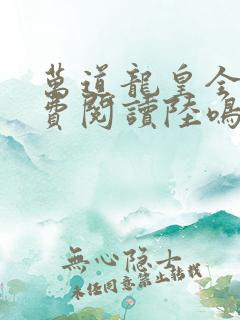 萬道龍皇全
費閱讀陸鳴
無心隐士
未经同意禁止转载